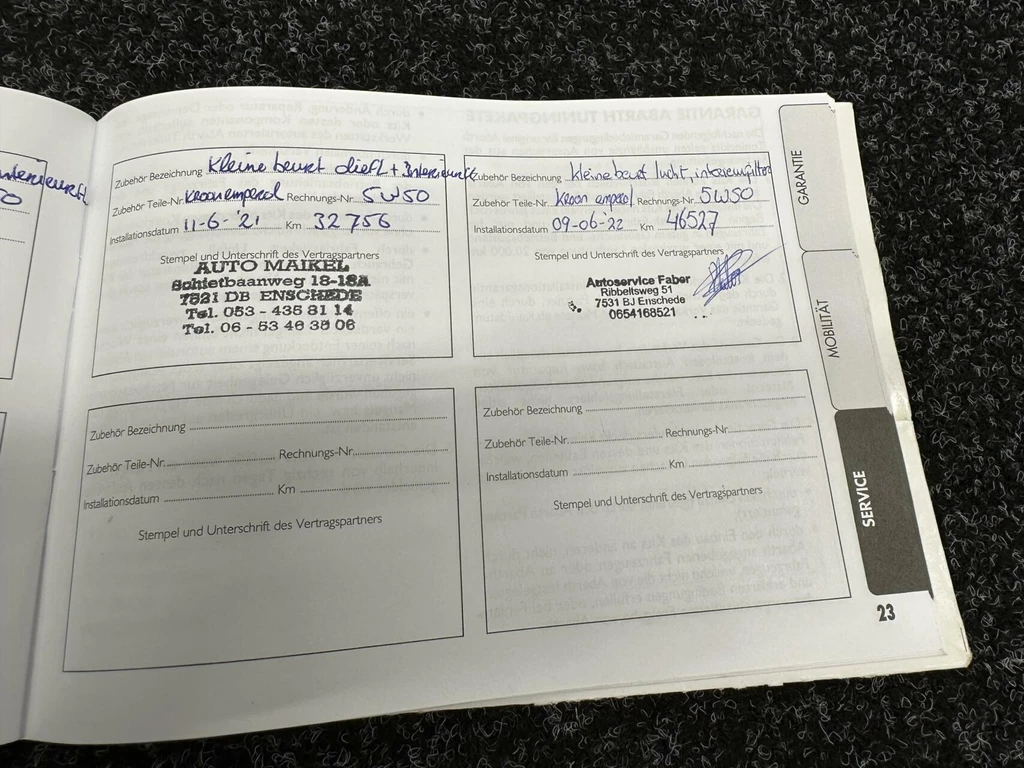 Zubehör Bezeichnung Kleine beurt
Zubehör Teile-Nr. Kroon emperol Rechnungs-Nr. 5W50
Installationsdatum 11-6-'21 Km 32756
Stempel und Unterschrift des Vertragspartners
AUTO MAIKEL
Schietbaanweg 18-18A
7521 DB ENSCHEDE
Tel. 053 - 435 81 14
Tel. 06 - 53 46 38 06
Zubehör Bezeichnung Kleine beurt lucht, interieurfilter
Zubehör Teile-Nr. Kroon emperol Rechnungs-Nr. 5W50
Installationsdatum 09-06-'22 Km 46527
Stempel und Unterschrift des Vertragspartners
Autoservice Faber
Ribbeltsweg 51
7531 BJ Enschede
0654168521
Zubehör Bezeichnung
Zubehör Teile-Nr. Rechnungs-Nr.
Installationsdatum Km
Stempel und Unterschrift des Vertragspartners
Zubehör Bezeichnung
Zubehör Teile-Nr. Rechnungs-Nr.
Installationsdatum Km
Stempel und Unterschrift des Vertragspartners
GARANTIE
MOBILITÄT
SERVICE
23